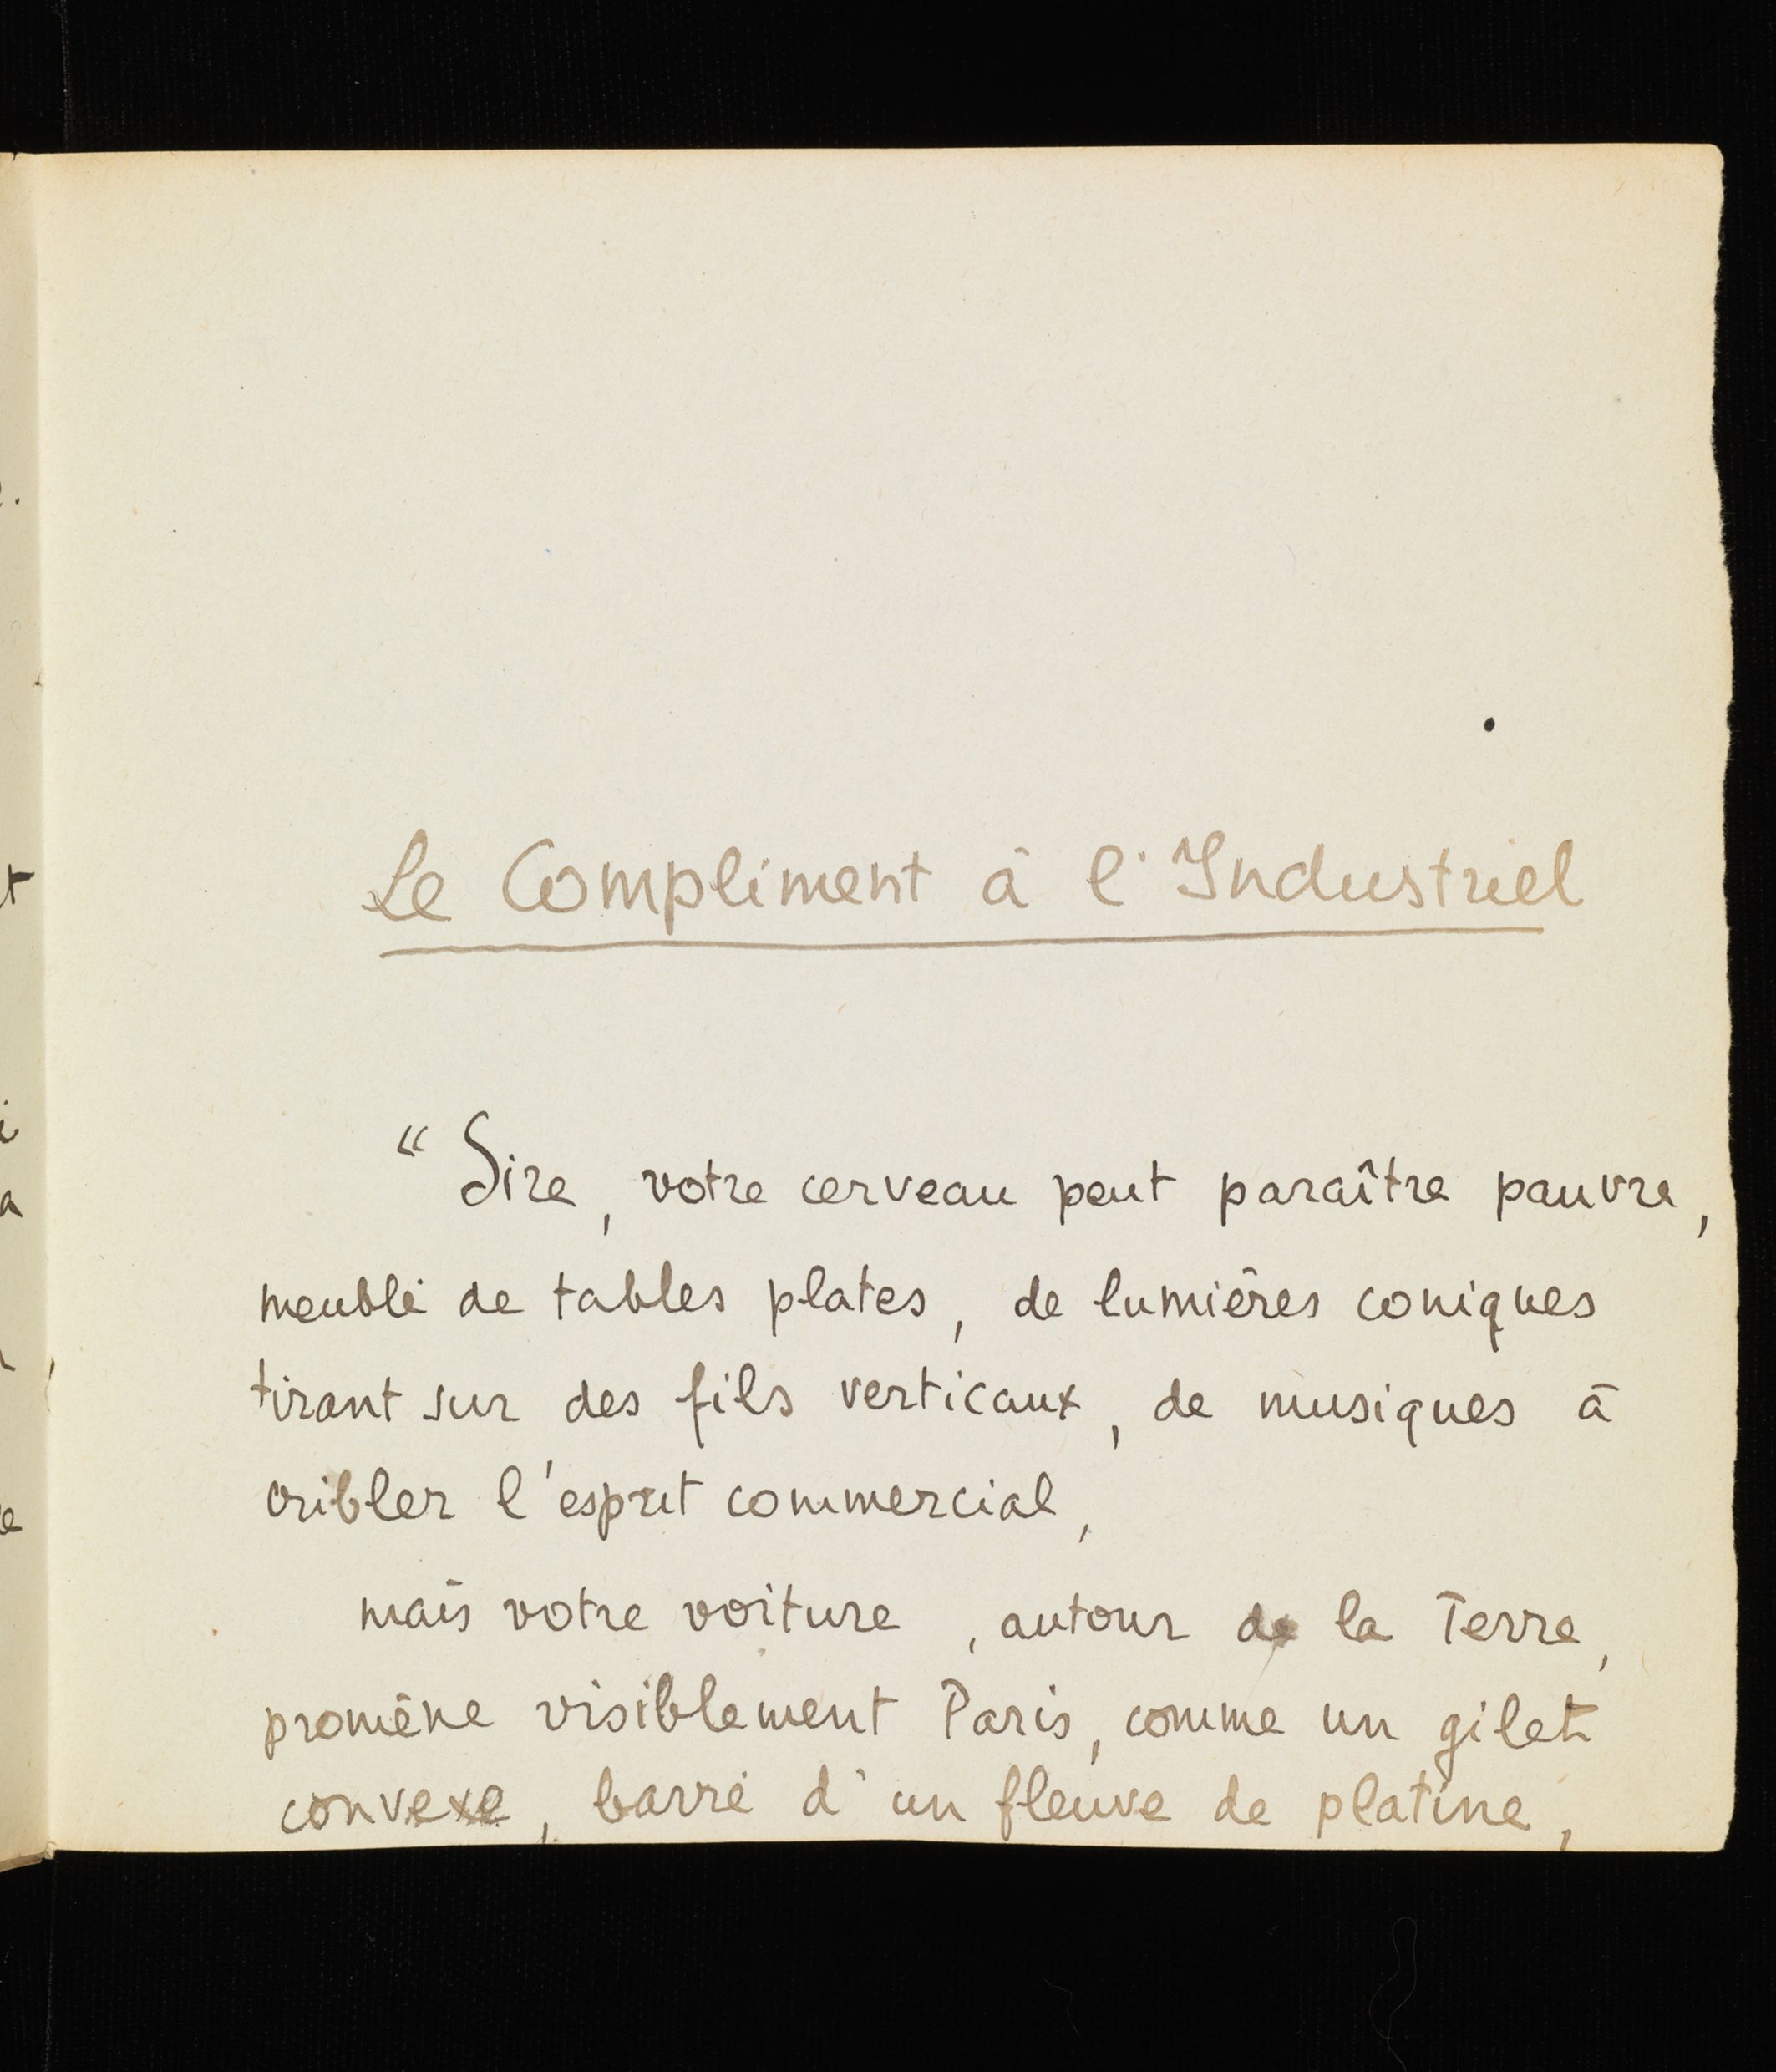 Le Compliment à l'Industriel
“ Sire, votre cerveau peut paraître pauvre,
meublé de tables plates, de lumières coniques
tirant sur des fils verticaux, de musiques à
cribler l'esprit commercial,
mais votre voiture, autour de la Terre,
promène visiblement Paris, comme un gilet
convexe, barré d'un fleuve de platine,